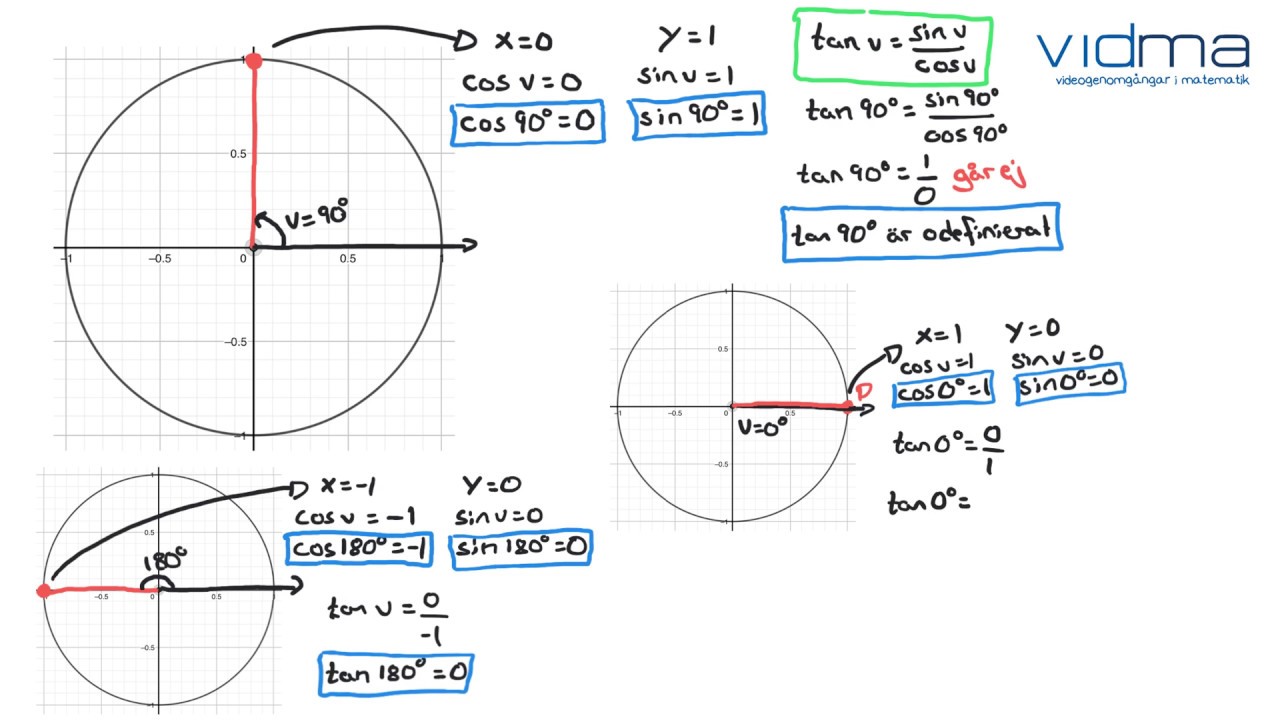 x=0 y=1
cos v=0 sin v=1
cos 90°=0 sin 90°=1
tan v = sin v / cos v
tan 90° = sin 90° / cos 90°
tan 90° = 1 / 0 går ej
tan 90° är odefinierat
vidma
videogenomgångar i matematik
1
0.5
v=90°
-1 -0.5 0 0.5 1
-0.5
-1
x=1 y=0
cos v=1 sin v=0
cos 0°=1 sin 0°=0
tan 0° = 0 / 1
tan 0° =
1
0.5
-1 -0.5 0 0.5
v=0°
-0.5
-1
x=-1 y=0
cos v = -1 sin v=0
cos 180°=-1 sin 180°=0
tan v = 0 / -1
tan 180°=0
1
0.5
180°
-0.5 0 0.5
-0.5
-1